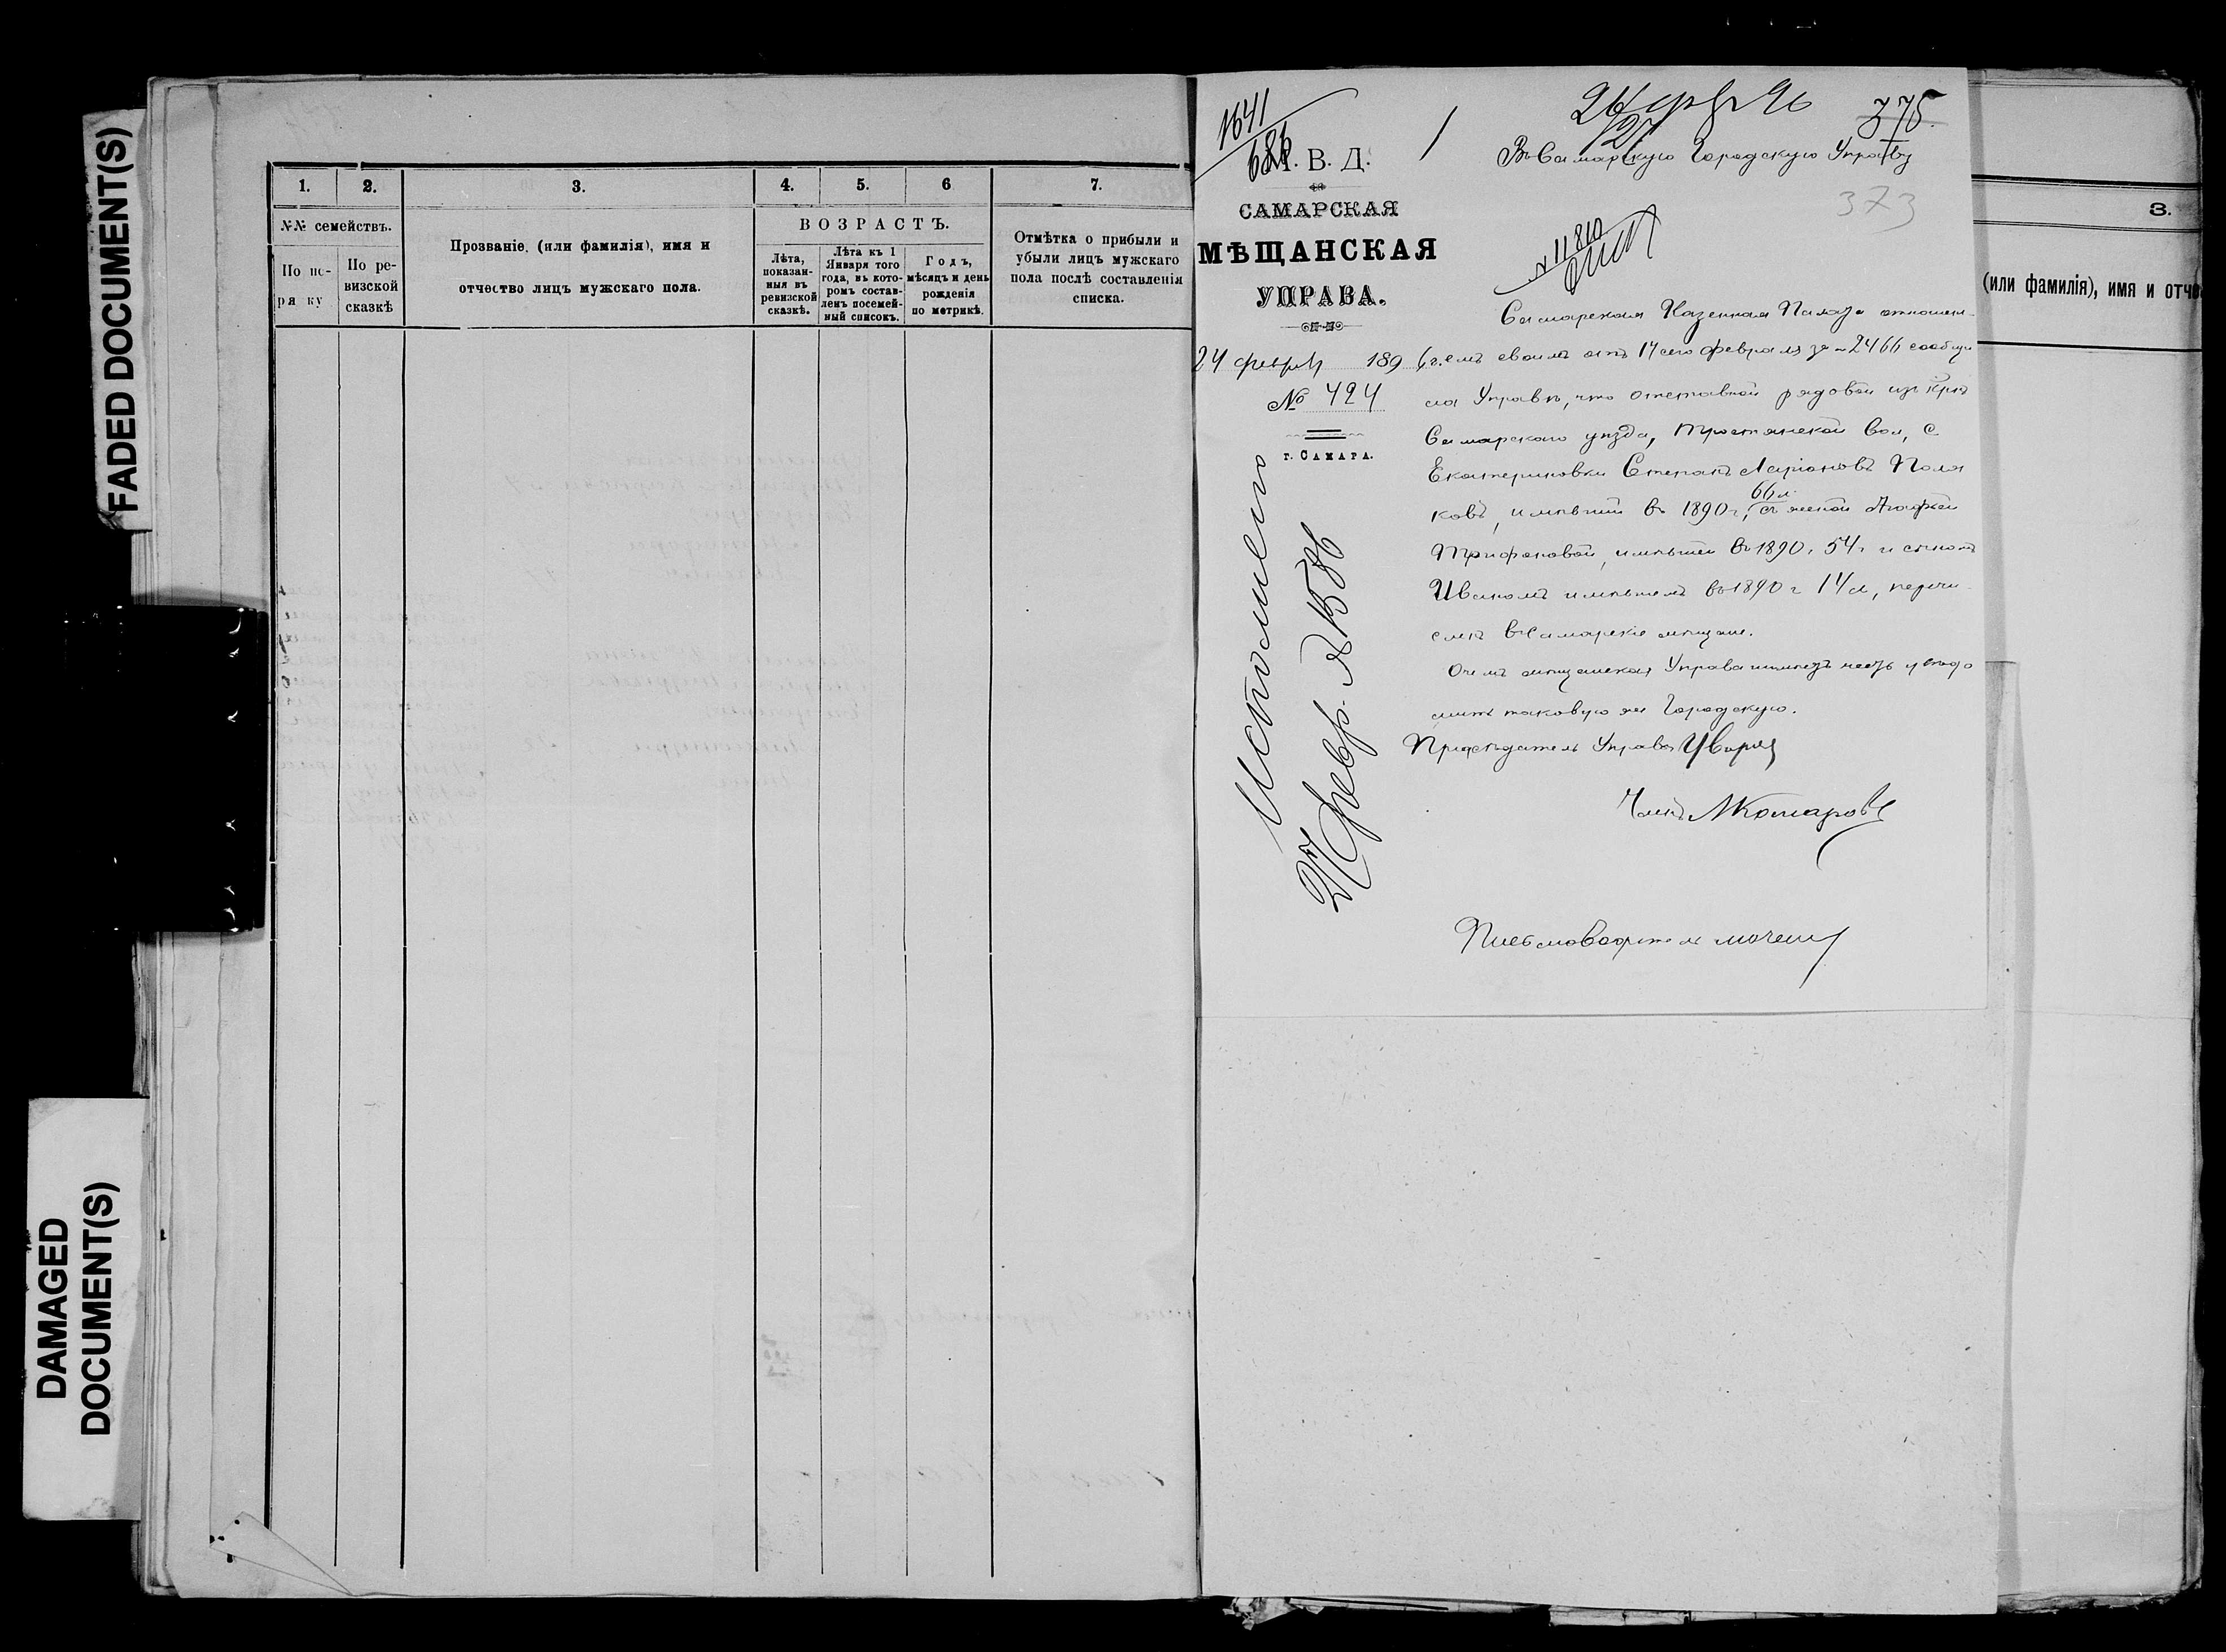 FADED DOCUMENT(S)
DAMAGED
DOCUMENT(S)
1.
2.
3.
4.
5.
6
7.
№№ семействъ.
По по-
ря ку
По ре-
визской
сказкѣ
Прозваніе, (или фамилія), имя и
отчество лицъ мужскаго пола.
ВОЗРАСТЪ.
Лѣта,
показан-
ныя въ
ревизской
сказкѣ.
Лѣта къ 1
Января того
года, въ кото-
ромъ состав-
ленъ посемей-
ный списокъ.
Годъ,
мѣсяцъ и день
рожденія
по метрикѣ.
Отмѣтка о прибыли и
убыли лицъ мужскаго
пола послѣ составленія
списка.
1641
686
М. В. Д.
САМАРСКАЯ
МѢЩАНСКАЯ
УПРАВА.
24 февр 1896 г.
№ 424
г. САМАРА.
Исполнено
27 февр. № 1586
375.
Въ Самарскую Городскую Управу
373
№ 11810
Самарская Казенная Палата отношен-
емъ своимъ отъ 17 сего февраля за № 2466 сообщи
ла Управѣ, что отставной рядовой изъ крѣ
Самарскаго уѣзда, Тростянской вол, с
Екатериновки Степанъ Ларіоновъ Поля
ковъ, имѣвшій въ 1890 г, 66 л. съ женой Агафьей
Трифоновой, имѣвшей въ 1890 г. 54 г и сыномъ
Иваномъ имѣвшемъ въ 1890 г 14 л, перечи
слен въ Самарскіе мѣщане.
О чемъ мѣщанская Управа имѣетъ честь увѣдо
мить таковую же Городскую.
Предсѣдатель Управы
Членъ М Комаровъ
Письмоводитель
3.
(или фамилія), имя и отче